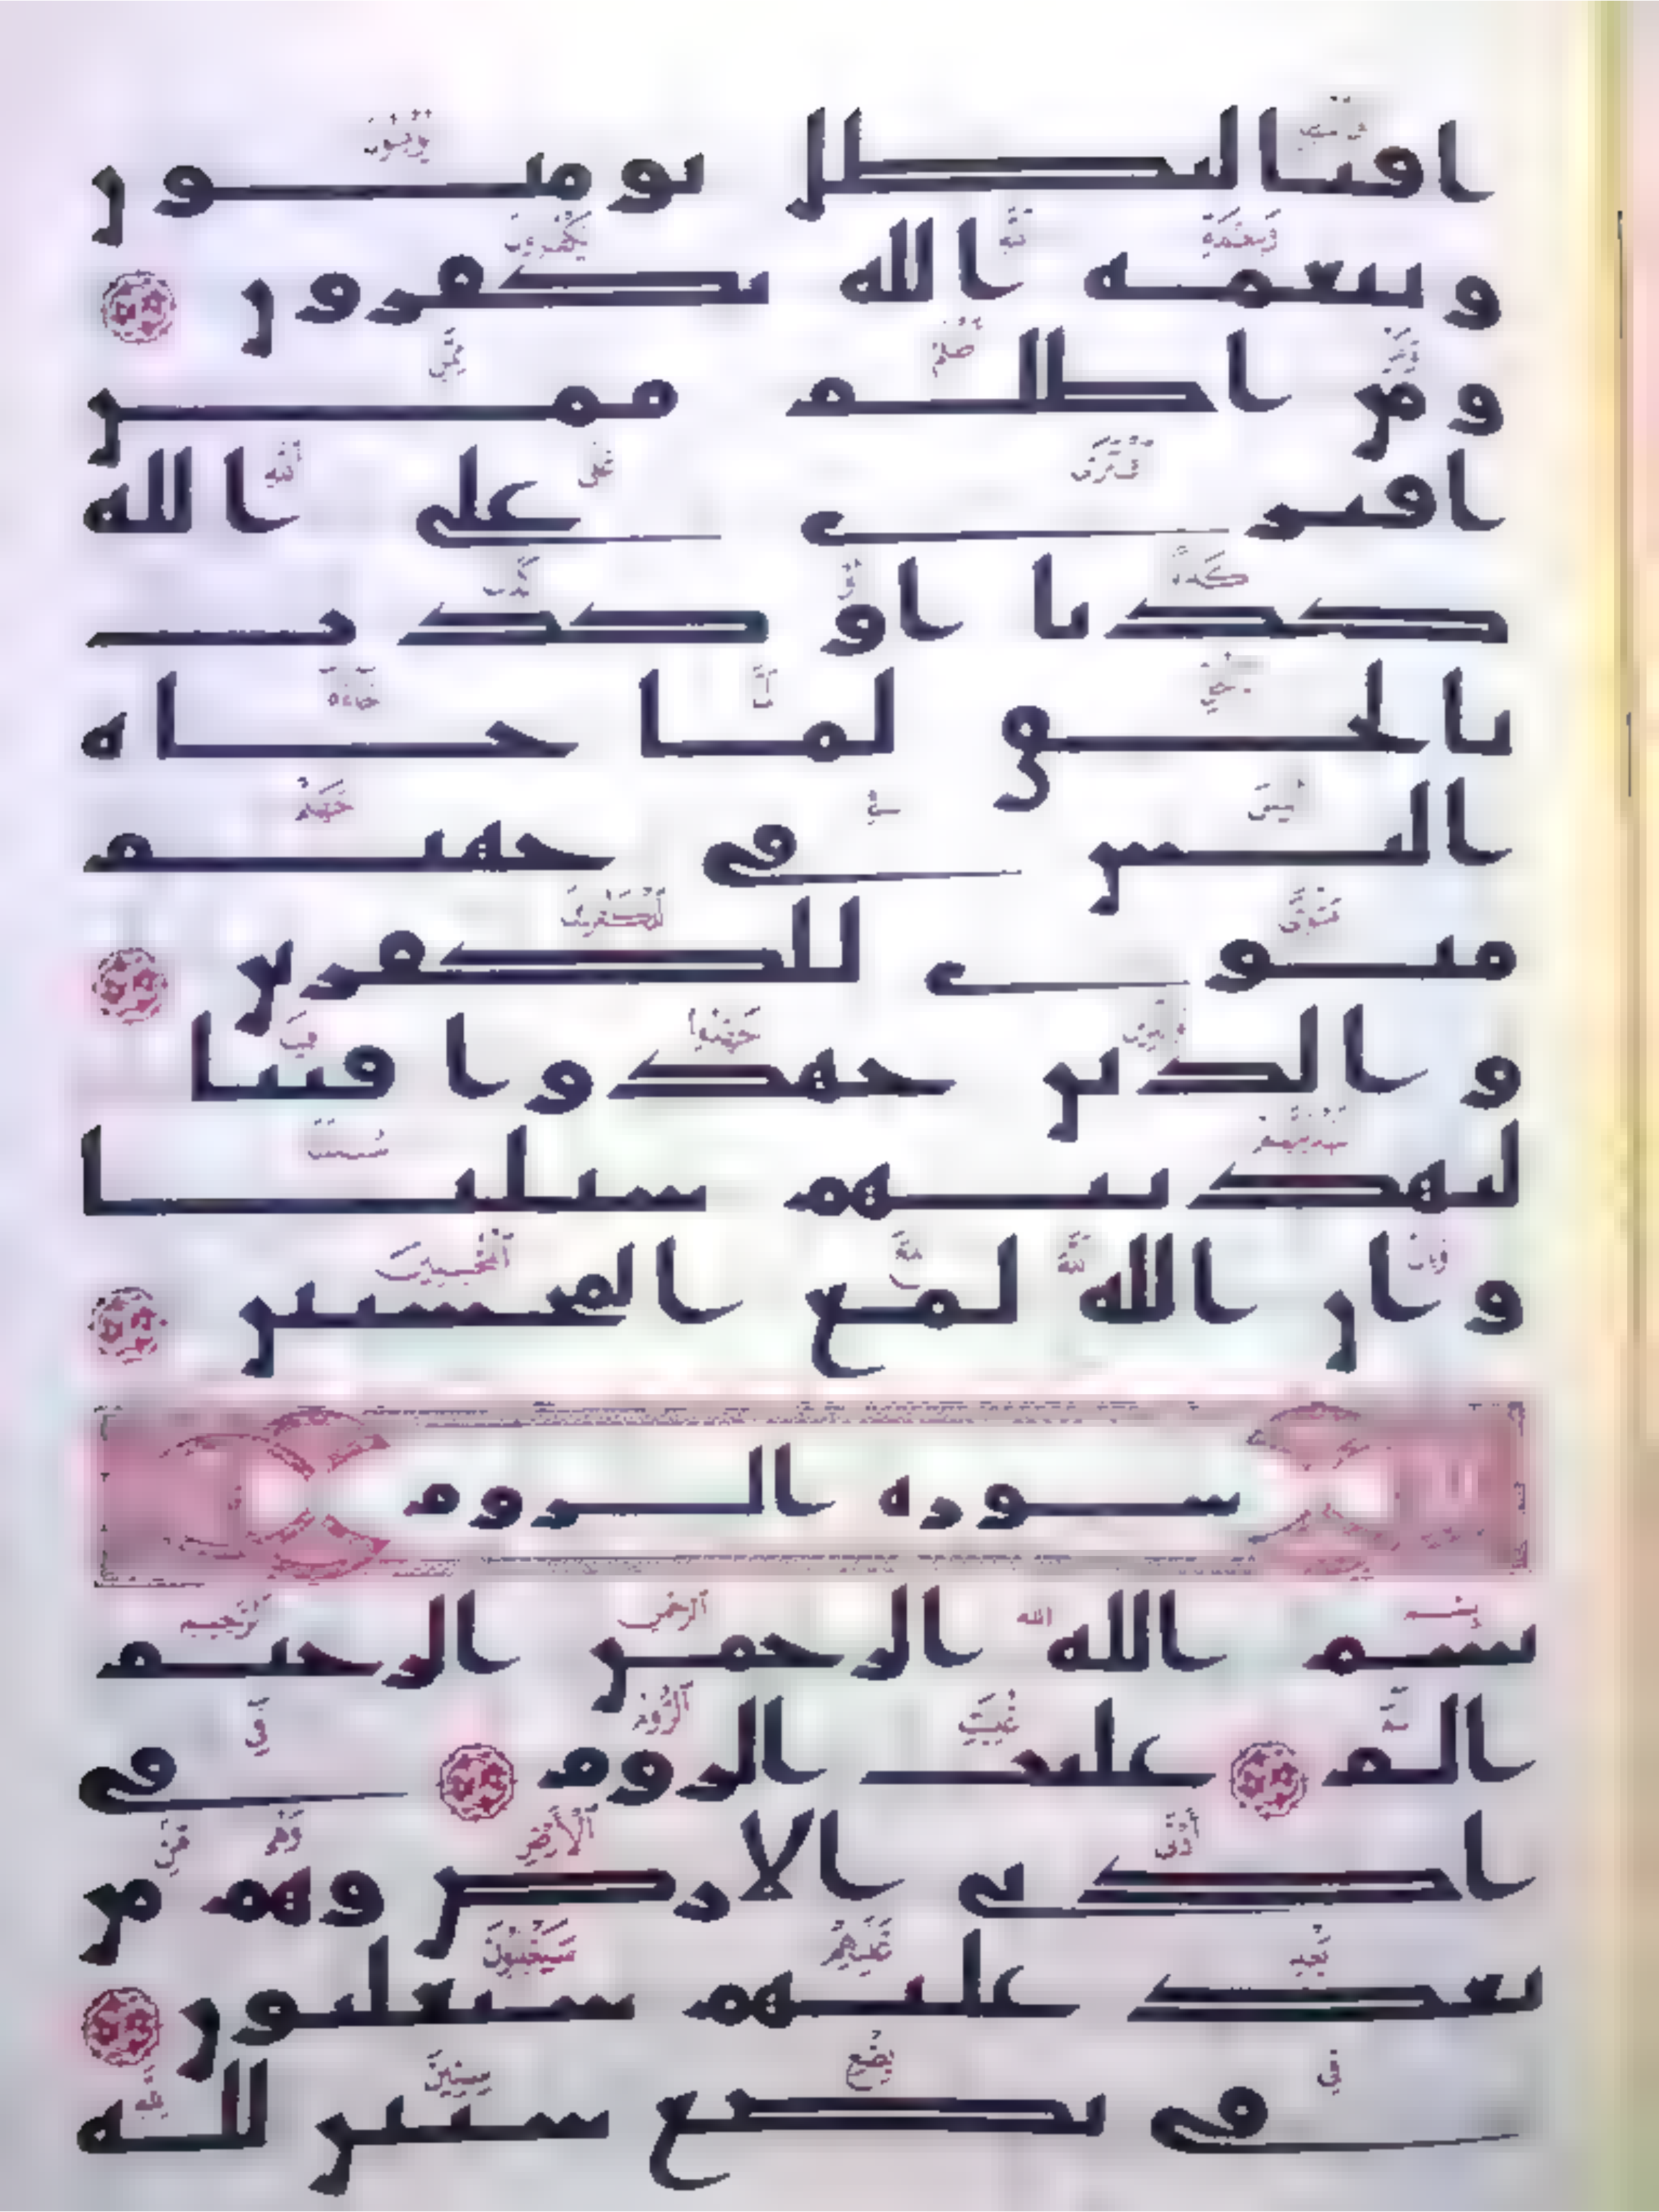 افبالبطل يومنون
وبنعمه الله يكفرون
ومن اظلم ممن
افترى على الله
كذبا او كذب
بالحق لما جاه
اليس في جهنم
مثوى للكفرين
والذين جهدوا فينا
لنهدينهم سبلنا
وان الله لمع المحسنين
سوره الروم
بسم الله الرحمن الرحيم
الم غلبت الروم في
ادنى الارض وهم من
بعد غلبهم سيغلبون
في بضع سنين لله